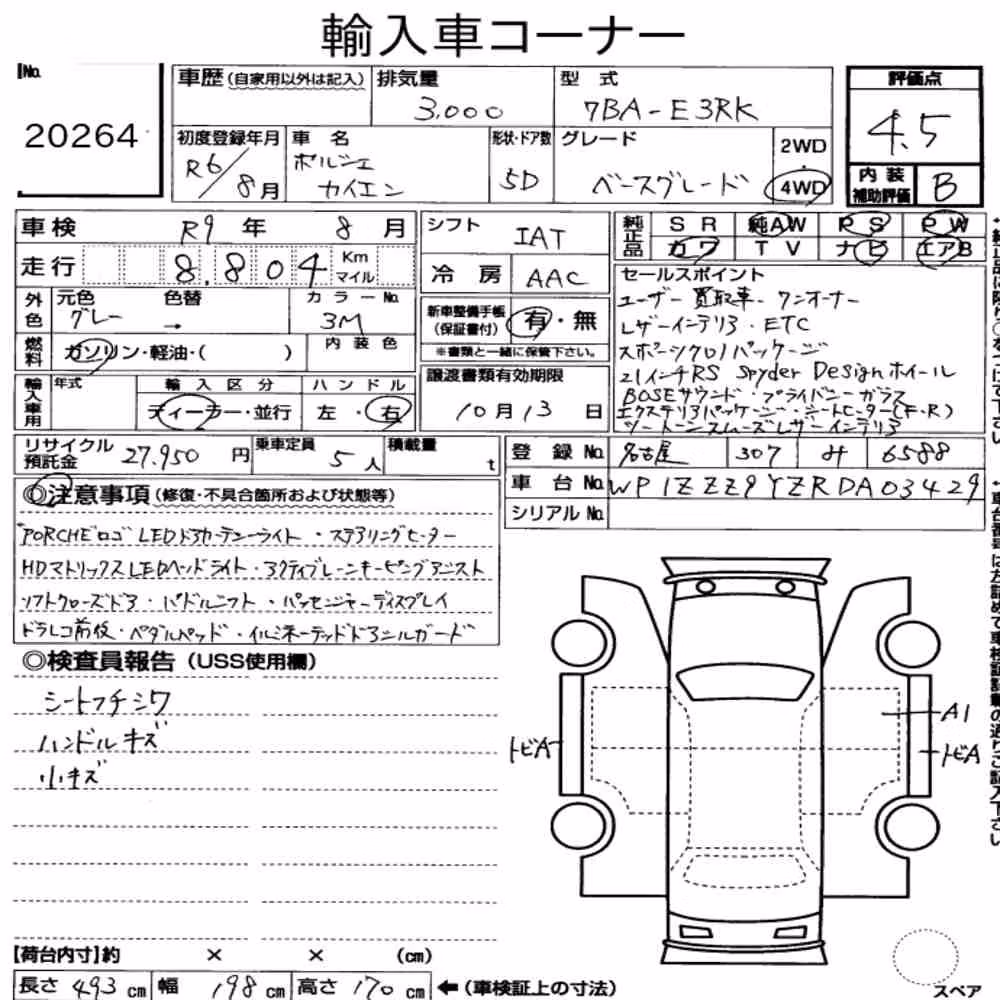 輸入車コーナー
No.
20264
車歴(自家用以外は記入)
排気量
3.000
型 式
7BA-E3RK
評価点
4.5
初度登録年月
R6/8月
車 名
ポルシェ
カイエン
形状・ドア数
5D
グレード
ベースグレード
2WD
・
4WD
内 装
補助評価
B
車検
R9 年 8 月
走行
8,804
Km
マイル
シフト
IAT
冷 房
AAC
純正品
SR 純AW PS PW
カワ TV ナビ エアB
外色
元色
グレー
色替
→
カラーNo.
3M
燃料
ガソリン・軽油・( )
内 装 色
新車整備手帳
(保証書付)
有・無
※書類と一緒に保管下さい。
セールスポイント
ユーザー買取車・ワンオーナー
レザーインテリア・ETC
スポーツクロノパッケージ
21インチRS Spyder Designホイール
BOSEサウンド・プライバシーガラス
エクステリアパッケージ・シートヒーター(F・R)
ツートーンスムーズレザーインテリア
輸入車用
年式
輸 入 区 分
ディーラー・並行
ハ ン ド ル
左 ・ 右
譲渡書類有効期限
10月13 日
リサイクル
預託金
27.950 円
乗車定員
5人
積載量
t
登 録 No.
名古屋 307 み 6588
車 台 No.
WP1ZZZ9YZRDA03429
シリアル No.
◎注意事項(修復・不具合箇所および状態等)
"PORCHE"ロゴ LEDドアカーテシーライト・ステアリングヒーター
HDマトリックスLEDヘッドライト・アクティブレーンキーピングアシスト
ソフトクローズドア・パドルシフト・パッセンジャーディスプレイ
ドラレコ前後・ペダルパッド・イルミネーテッドドアシルガード
◎検査員報告(USS使用欄)
シートフチシワ
ハンドルキズ
小キズ
A1
トビA
トビA
スペア
【荷台内寸】約 × × (cm)
長さ 493 cm
幅 198 cm
高さ 170 cm
←(車検証上の寸法)